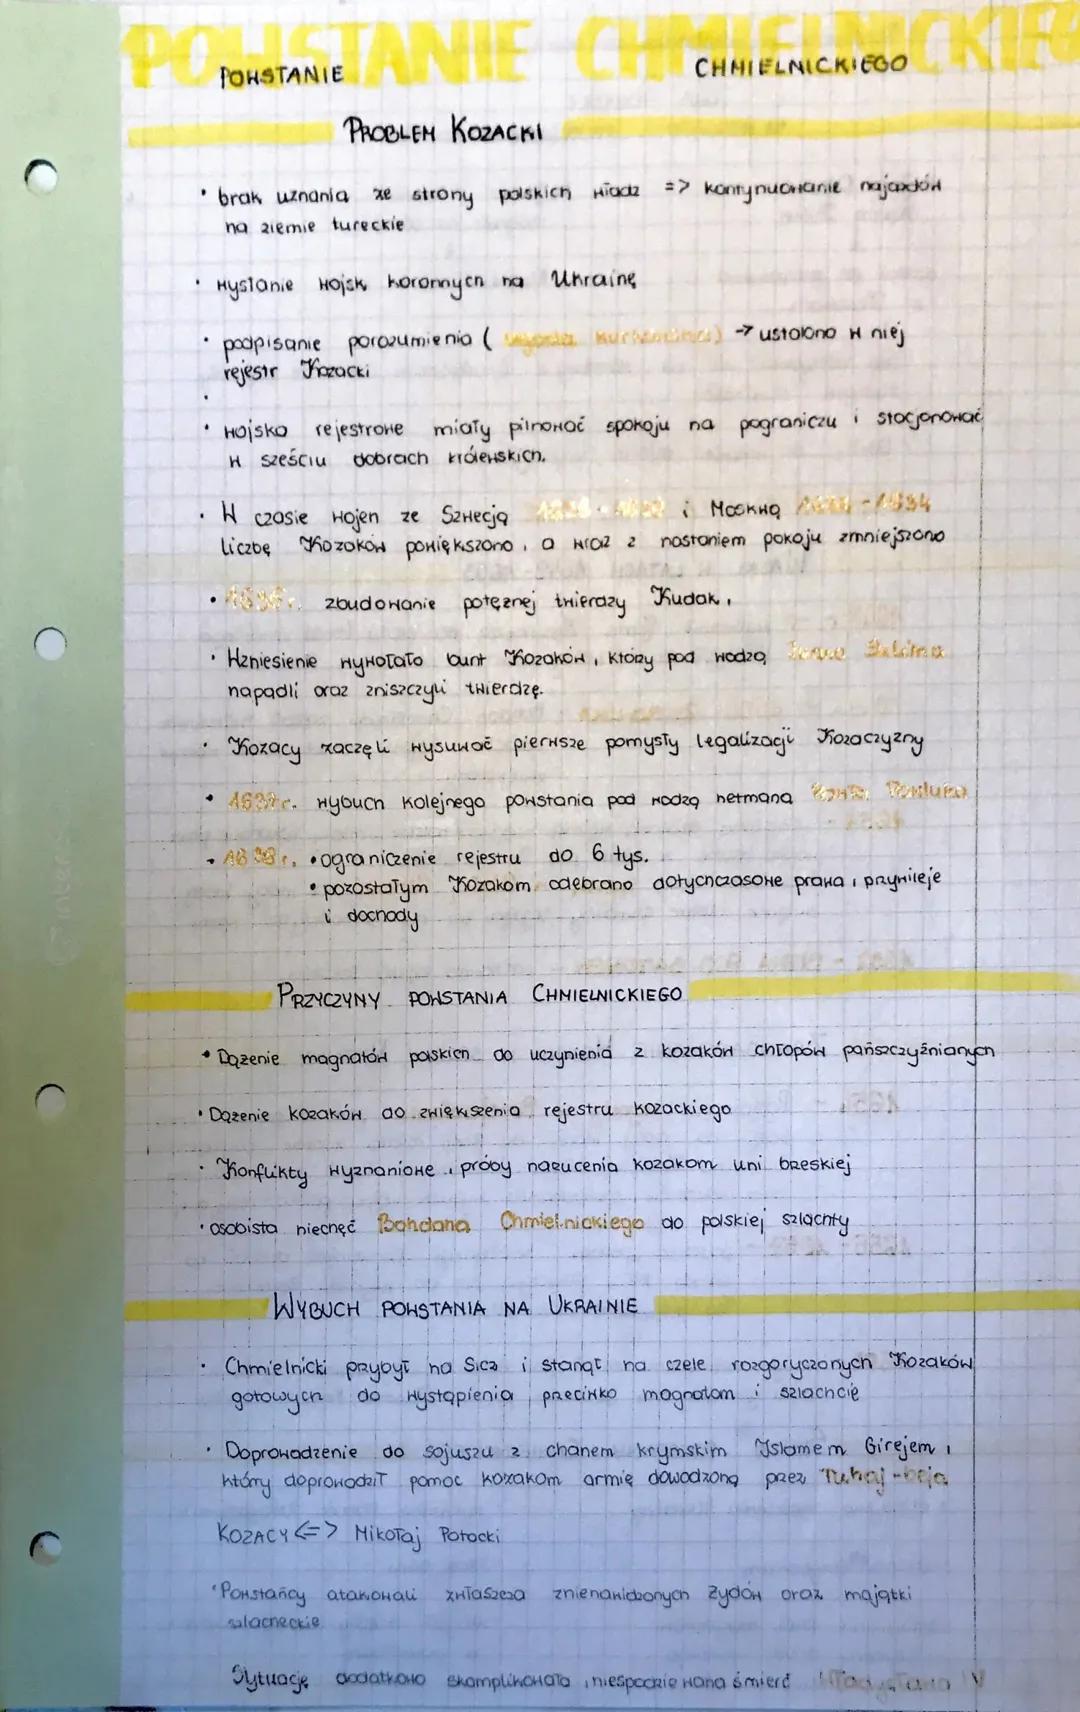 POWSTANIE CHMIELNICKIEG
POWSTANIE CHMIELNICKIEGO
PROBLEM KOZACKI
• brak uznania ze strony polskich władz => kontynuowanie najazdów
na ziemie tureckie
• wysłanie wojsk koronnych na Ukrainę
• podpisanie porozumienia (ugoda kurukowa) → ustalono w niej
rejestr Kozacki
•
• wojsko rejestrowe miały pilnować spokoju na pograniczu i stacjonować
w sześciu dobrach królewskich.
• W czasie wojen ze Szwecją i Moskwą -1634
liczbę Kozaków powiększono, a wraz z nastaniem pokoju zmniejszono
• zbudowanie potężnej twierdzy Kudak,
• Wzniesienie wywołało bunt Kozaków, którzy pod wodzą Iwana Sulima
napadli oraz zniszczyli twierdzę.
• Kozacy zaczęli wysuwać pierwsze pomysły legalizacji Kozaczyzny
• 1637r. wybuch kolejnego powstania pod wodzą hetmana Pawluka
• 1638r. • ograniczenie rejestru do 6 tys.
• pozostałym Kozakom odebrano dotychczasowe prawa, przywileje
i dochody
PRZYCZYNY POWSTANIA CHMIELNICKIEGO
• Dążenie magnatów polskich do uczynienia z kozaków chłopów pańszczyźnianych
• Dążenie kozaków do zwiększenia rejestru kozackiego
• Konflikty wyznaniowe, próby narzucenia kozakom uni brzeskiej
• osobista niechęć Bohdana Chmielnickiego do polskiej szlachty
WYBUCH POWSTANIA NA UKRAINIE
• Chmielnicki przybył na Sicz i stanął na czele rozgoryczonych Kozaków
gotowych do wystąpienia przeciwko magnatom i szlachcie
• Doprowadzenie do sojuszu z chanem krymskim Islamem Girejem,
który doprowadził pomoc kozakom armię dowodzoną przez Tuhaj-beja
KOZACY <=> Mikołaj Potocki
• Powstańcy atakowali zwłaszcza znienawidzonych Żydów oraz majątki
szlacheckie
Sytuację dodatkowo skomplikowała niespodziewana śmierć Władysława IV